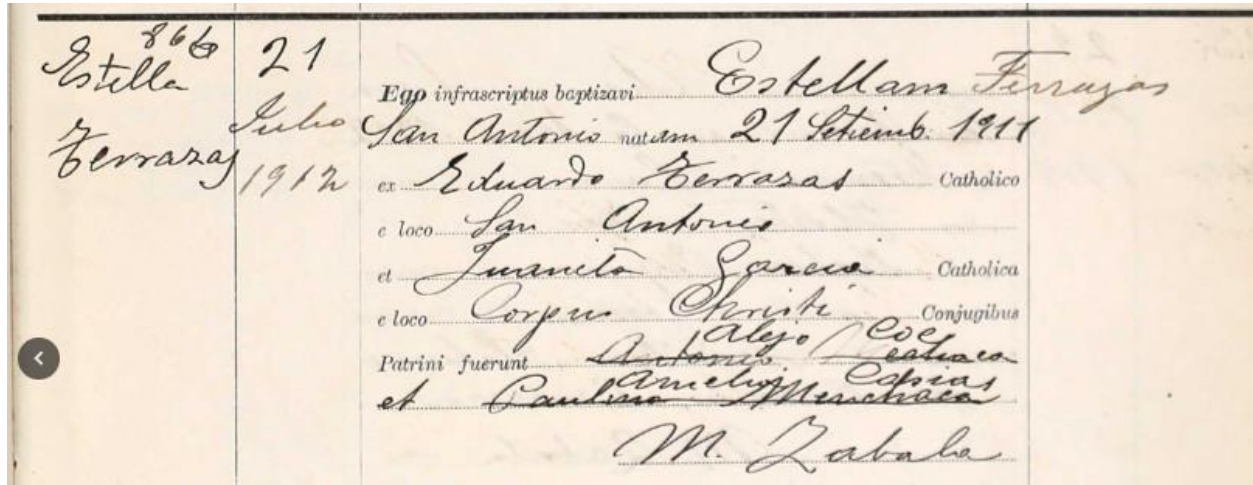 866
Estella
Terrazas
21
Julio
1912
Ego infrascriptus baptizavi Estellam Terrazas
San Antonio natam 21 Setiemb. 1911
ex Eduardo Terrazas Catholico
e loco San Antonio
et Juanita Garcia Catholica
e loco Corpus Christi Conjugibus
Alejo Coe
Patrini fuerunt Antonio
Amelia Casias
et Paulina Menchaca
M. Zabala